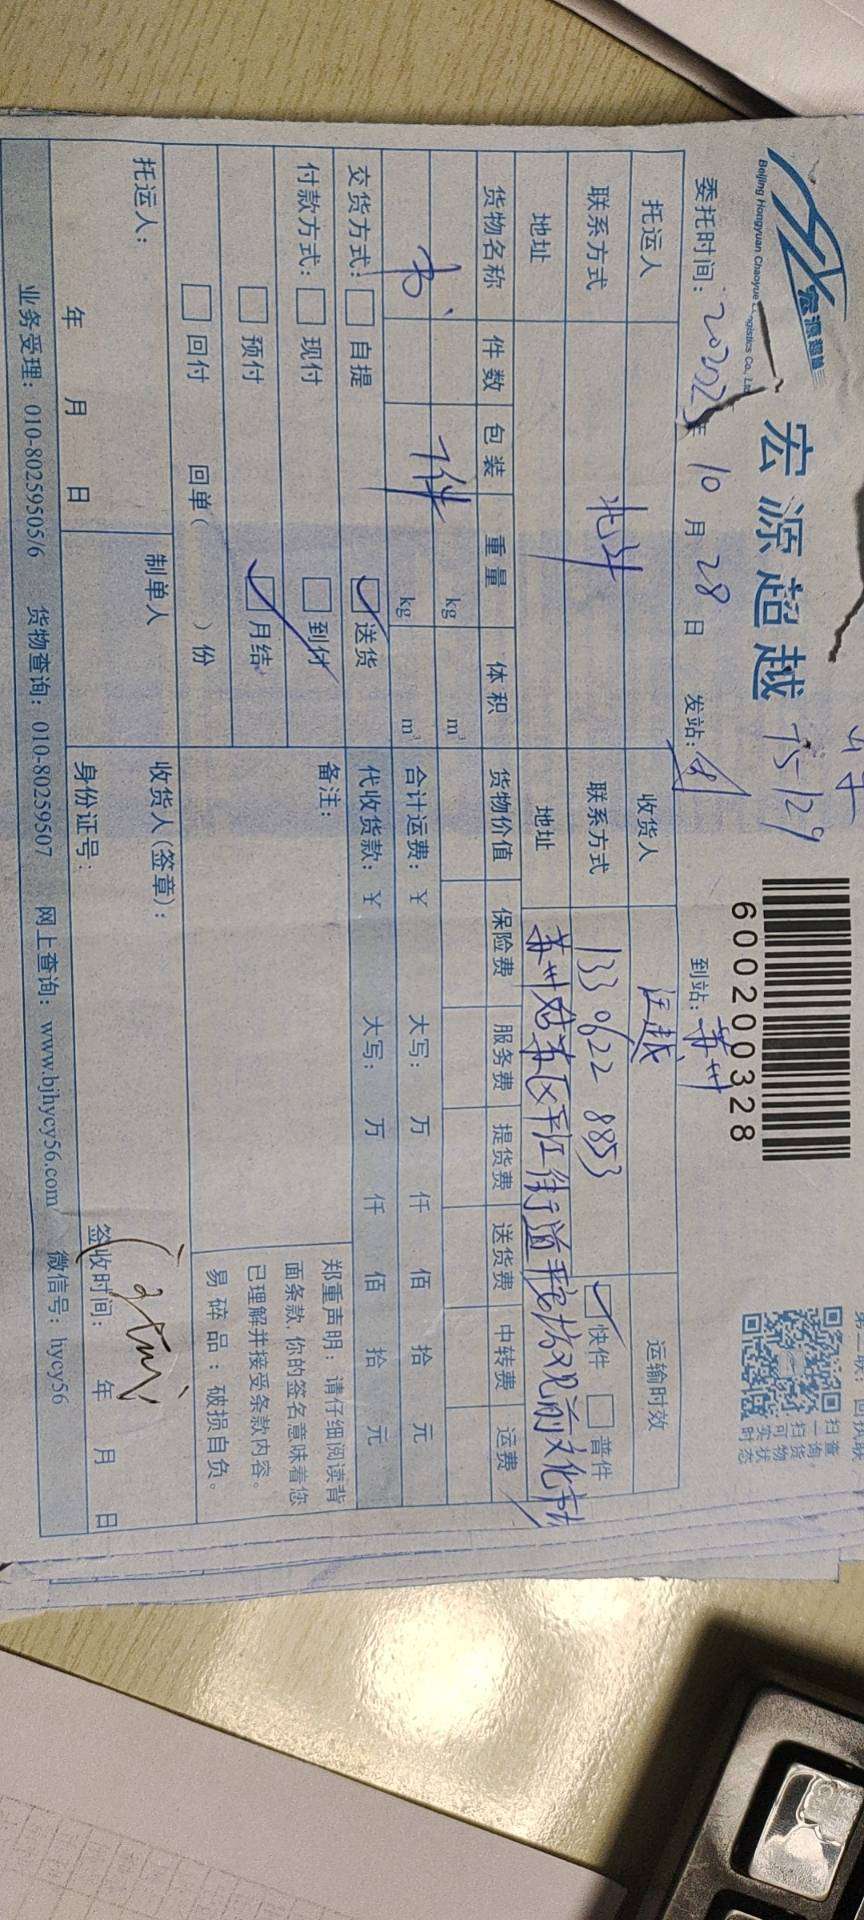 宏源超越
Beijing Hongyuan Chaoyue Logistics Co., Ltd
宏源超越 75-129
600200328
扫一扫可实时
查询货物状态
委托时间: 年 10 月 28 日 发站: 到站: 苏州
托运人 收货人 汪越 运输时效
联系方式 北斗 联系方式 133 0622 8853 快件 普件
地址 地址 苏州姑苏区平江街道 观前文化市
货物名称 件数 包装 重量 体积 货物价值 保险费 服务费 提货费 送货费 中转费 运费
kg m³
书 7件 kg m³ 合计运费: ¥ 大写: 万 仟 佰 拾 元
交货方式: 自提 送货 代收货款: ¥ 大写: 万 仟 佰 拾 元
付款方式: 现付 到付 备注:
预付 月结
回付 回单( )份
郑重声明: 请仔细阅读背
面条款,你的签名意味着您
已理解并接受条款内容。
易碎品: 破损自负。
托运人: 制单人 收货人(签章):
年 月 日 身份证号: 签收时间: 年 月 日
业务受理: 010-80259505/6 货物查询: 010-80259507 网上查询: www.bjhycy56.com 微信号: hycy56